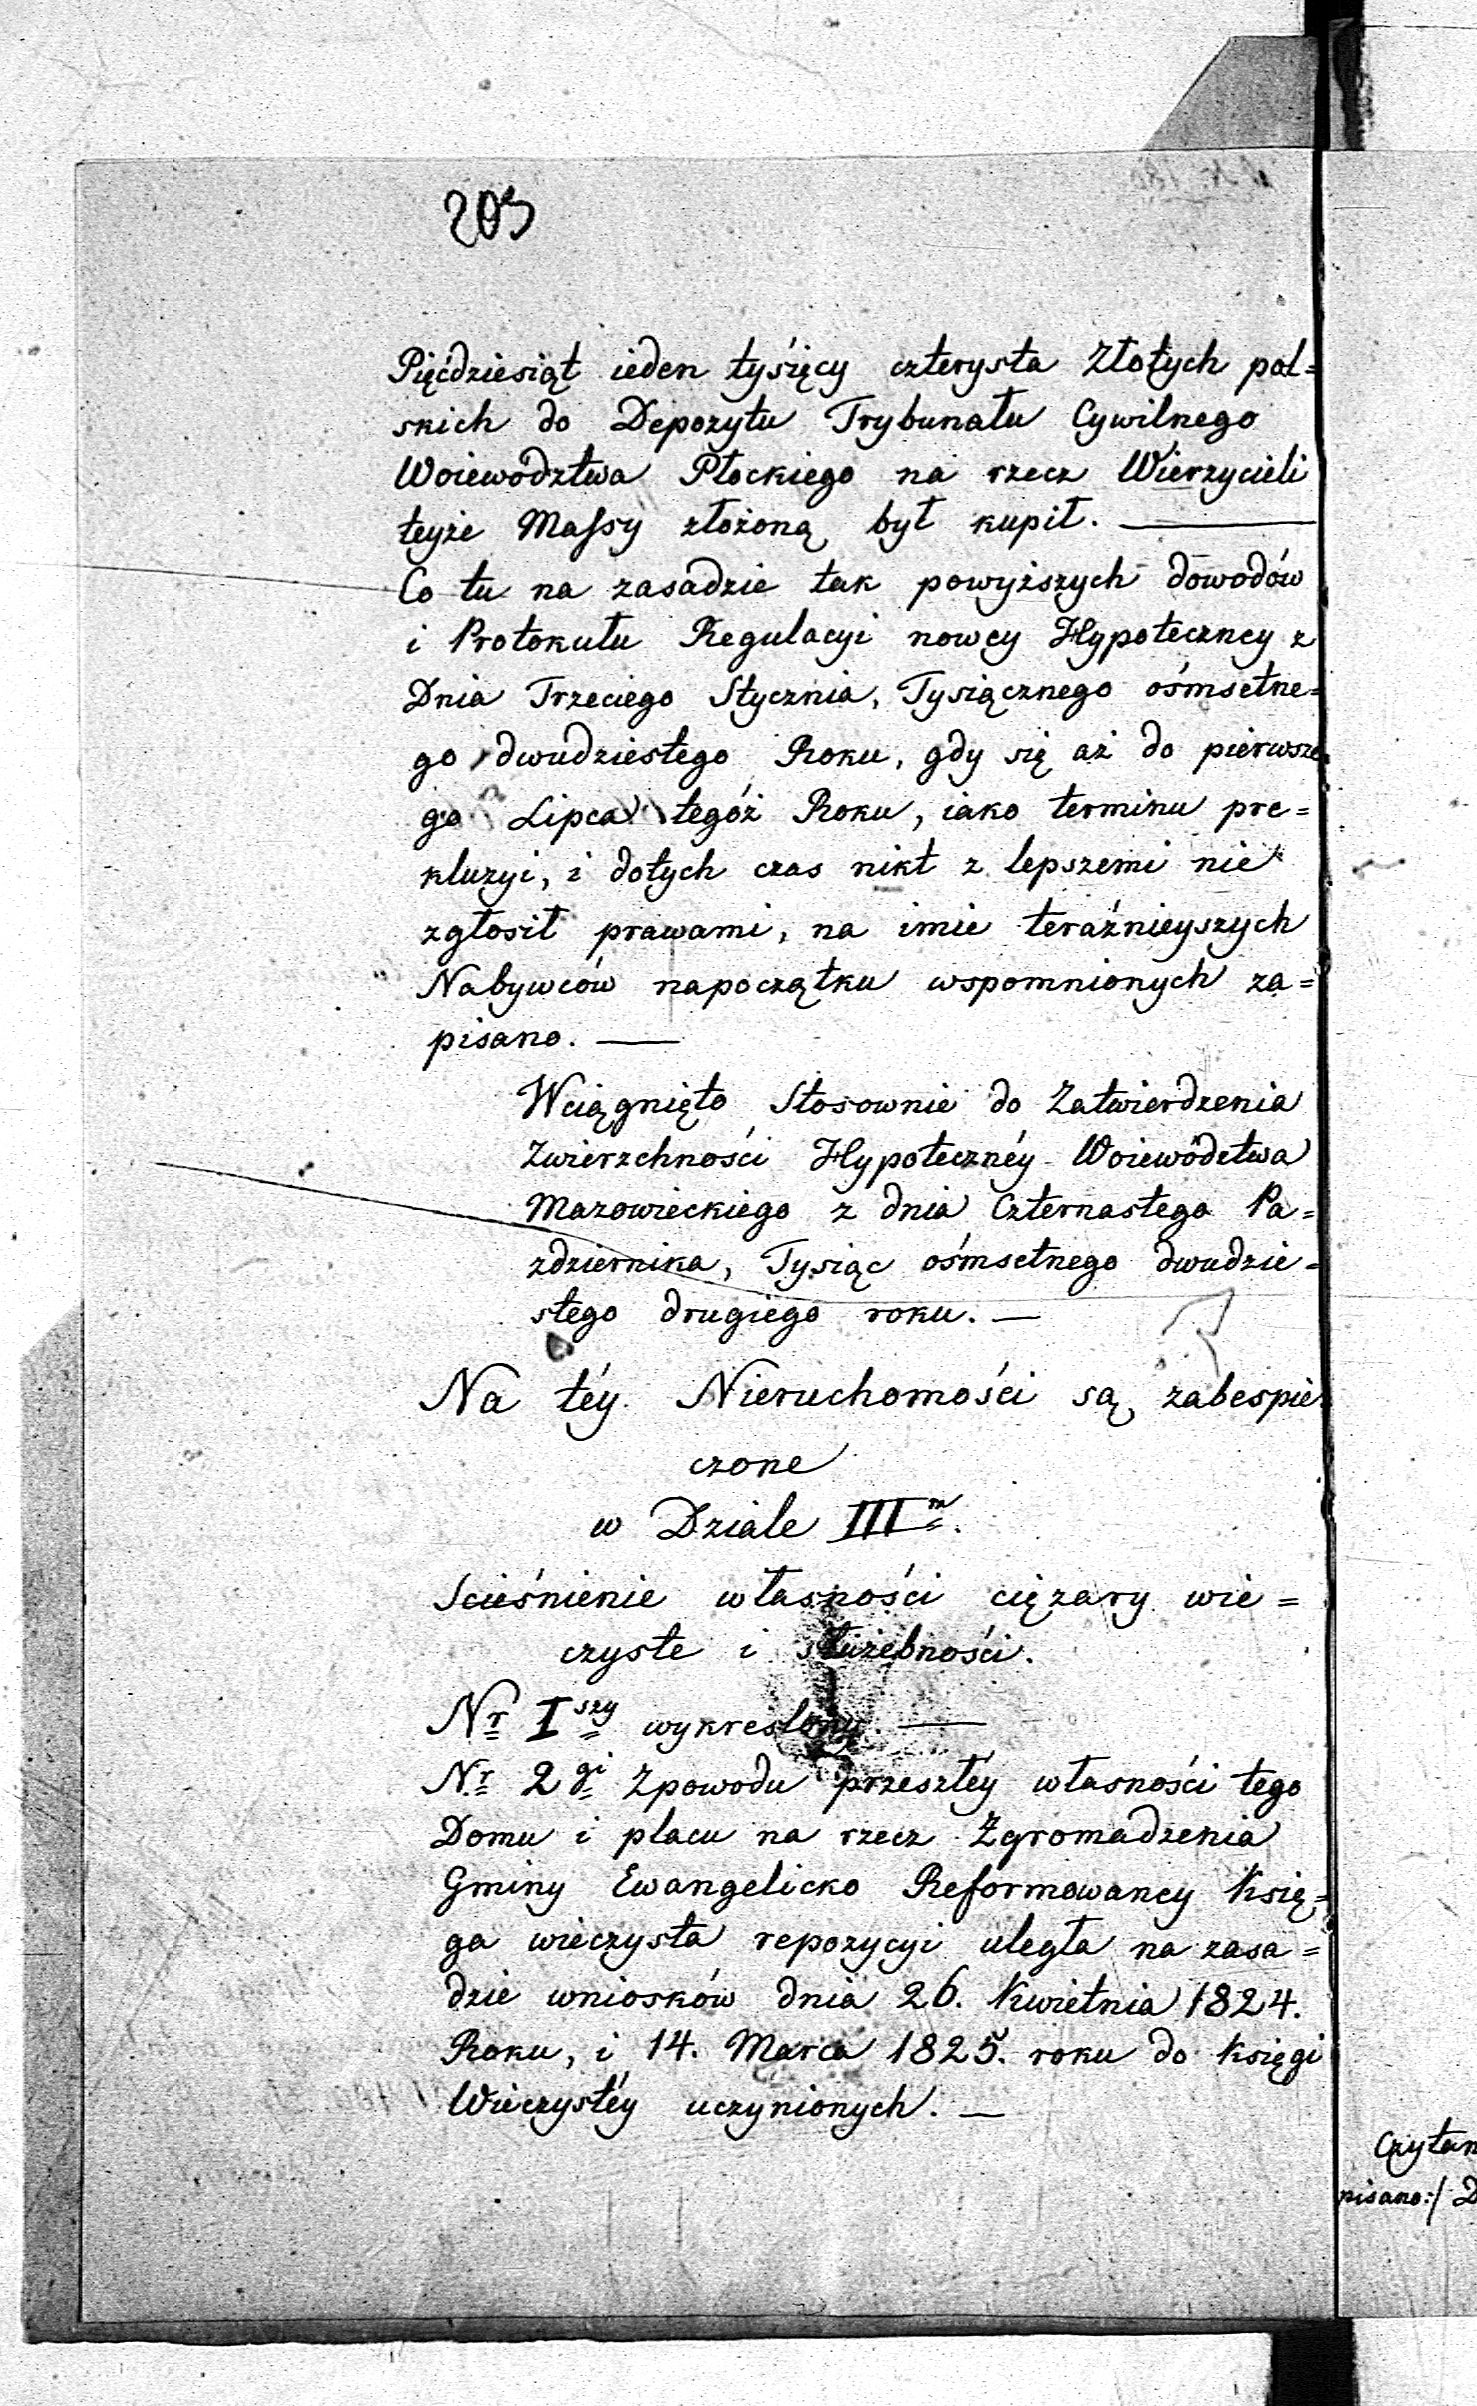 203
Pięćdziesiąt ieden tyśięcy czterysta Złotych pol=
skich do Depozytu Trybunału Cywilnego
Woiewództwa Płockiego na rzecz Wierzycieli
teyże Massy złożoną był kupił. —
Co tu na zasadzie tak powyższych dowodów
i Protokułu Regulacyi nowey Hypoteczney z
Dnia Trzeciego Stycznia, Tysiącznego ośmsetne=
go dwudziestego Roku, gdy się aż do pierwsze
go Lipca tegóż Roku, iako terminu pre=
kluzyi, i dotych czas nikt z lepszemi nie
zgłosił prawami, na imie teraźnieyszych
Nabywców napoczątku wspomnionych za=
pisano. —
Wciągnięto Stosownie do Zatwierdzenia
Zwierzchności Hypotecznéy Woiewództwa
Mazowieckiego z dnia Czternastego Pa=
zdziernika, Tysiąc ośmsetnego dwudzie=
stego drugiego roku. —
Na téy Nieruchomości są zabespie
czone
w Dziale III m.
Scieśnienie własności ciężary wie=
czyste i służebności.
Nr I szy wykreślony. —
Nr 2 gi Zpowodu przeszłéy własności tego
Domu i placu na rzecz Zgromadzenia
Gminy Ewangelicko Reformowaney Księ=
ga wieczysta repozycyi uległa na zasa=
dzie wniosków dnia 26. Kwietnia 1824.
Roku, i 14. Marca 1825. roku do Księgi
Wieczystéy uczynionych. —
Czytan
pisano:/ D